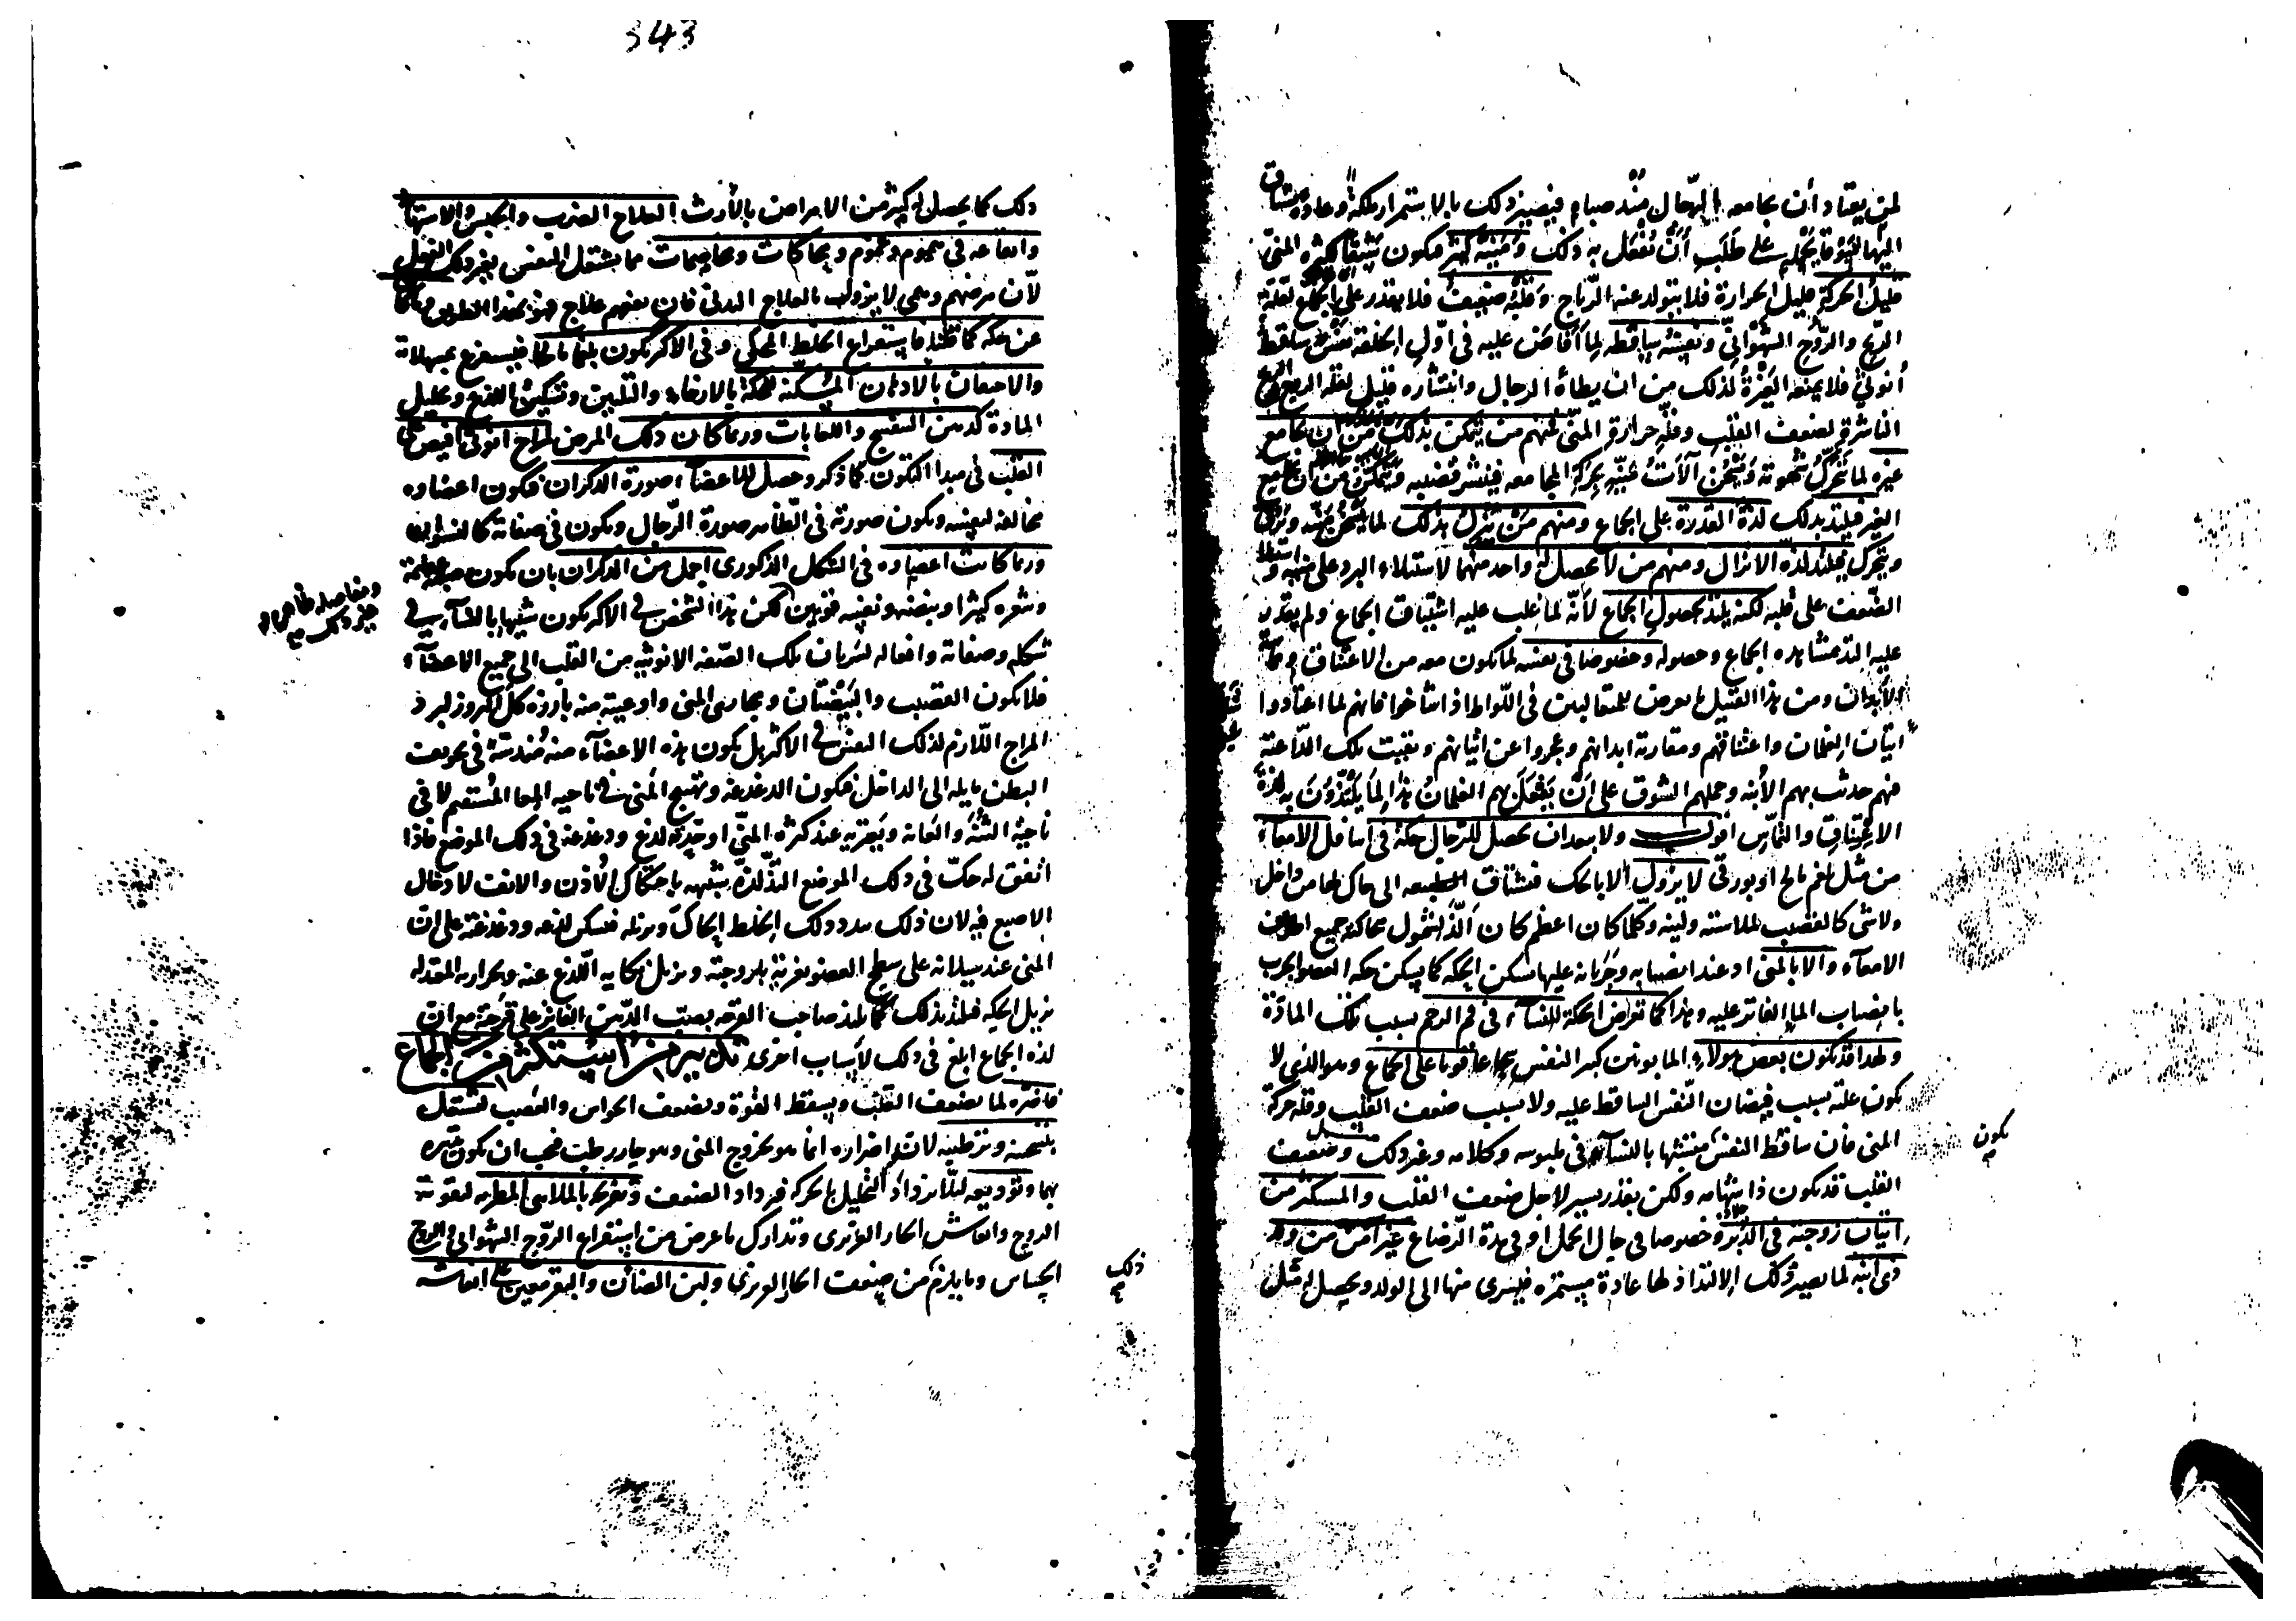 لمن يعتاد أن يجامعه الرجال منذ صباه فيصير ذلك بالاستمرار ملكة وعادة يشتاق
اليها شوقا يحمله على طلب أن يفعل به ذلك ومنيه كثير فيكون شبقا لكثرة المنى
قليل الحركة قليل الحرارة فلا يتولد عنه الرياح وقلبه ضعيف فلا يقدر على الجماع لقلة
الريح والروح الشهوانى ونفسه ساقطه لما أفاض عليه فى أول الخلقة نفس ساقط
أنوثى فلا يمنعه الغيرة لذلك من ان يطأه الرجال وانتشاره قليل لقلة الريح
الناشرة لضعف القلب وقلة حرارة المنى فمنهم من يتمكن بذلك من أن يجامع
غيره لما تتحرك شهوته ويسخن آلات منيه بحركة المجامعه فينشر قضيبه ويتمكن من أن يجامع
الغير فيلتذ بذلك لذة القدرة على الجماع ومنهم من ينزل بذلك لما يسخن منيه
ويتحرك فيلتذ لذة الانزال ومنهم من لا يحصل له واحد منهما لاستيلاء البرد على منيه
الضعف على قلبه لكنه يلتذ بحصول الجماع لأنه لما غلب عليه اشتياق الجماع ولم يقدر
عليه التذ بمشاهده الجماع وحصوله وخصوصا فى نفسه لما يكون معه من الاعتناق
الأبدان ومن هذا القبيل ما يعرض للمتقالبين فى اللواط اذا شاخوا فانهم لما اعتادوا
اتيان الغلمان واعتناقهم ومقاربة ابدانهم وعجزوا عن اتيانهم وبقيت تلك الداعية
فيهم حدث بهم الأبنه وحملهم الشوق على أن يفعل بهم الغلمان هذا لما يلتذون به لذة
الاعتناق والتماس اقول ولا يبعد ان يحصل للرجال حكة فى اسافل الامعاء
من مثل بلغم مالح او بورقى لا يزول الا بالحك فتشتاق الطبيعه الى حاك لها من داخل
ولا شى كالقضيب لملاسته ولينه وكلما كان اعظم كان ألذ لشمول محاكته جميع
الامعاء والا بالمنى اذ عند انصبابه وجريانه عليها يسكن الحكه كما يسكن حكه العضو الجرب
بانصباب الماء الفاتر عليه وهذا كما تعرض الحكة للنساء فى فم الرحم بسبب تلك المادة
ولهذا قد يكون بعض هؤلاء المابونين كبير النفس شجاعا قويا على الجماع وهو الذى لا
يكون علته بسبب فيضان النفس الساقط عليه ولا بسبب ضعف القلب وقلة حركة
يكون
المنى فان ساقط النفس متشبها بالنساء فى ملبوسه وكلامه وغير ذلك وضعيف
القلب قد يكون ذا شهامه ولكن بقدر يسير لاجل ضعف القلب والمستكثر من
اتيان زوجته فى الدبر وخصوصا فى حال الحمل او فى مدة الرضاع غير آمن من ولد
ذى أبنه لما يصير ذلك الالتذاذ لها عادة مستمره فيسرى منها الى الولد ويحصل له مثل
ذلك
343
ذلك كما يحصل له كثير من الامراض بالأرث العلاج الضرب والحبس والاستهانة
وايقاعه فى هموم وغموم ومحاكمات ومخاصمات مما يشتغل النفس بغير ذلك الفعل
لأن مرضهم وهمى لا يزول بالعلاج البدنى فان نفعهم علاج فهو بهذا الطريق
عن حكه كما قلنا فاستفراغ الخلط المحكى وفى الاكثر يكون بلغما مالحا فيستفرغ بمسهلاته
والاحتقان بالادهان المسكنه للحكة بالارخاء والتليين وتسكين اللذع وتحليل
المادة كدهن البنفسج واللعابات وربما كان ذلك المرض لمزاج انوثى افيض على
القلب فى مبدا التكون كما ذكر وحصل للاعضاء صورة الذكران فيكون اعضاوه
مخالفه لنفسه ويكون صورته فى الظاهر صورة الرجال ويكون فى صفاته كالنسوان
وربما كانت اعضاوه فى الشكل الذكورى اجمل من الذكران بان يكون عظيمة
ومفاصله ظاهرة
وشعره كثيرا ونبضه ونفسه قويين لكن هذا الشخص فى الاكثر يكون شبيها بالنساء فى
شكله وصفاته وافعاله لسريان تلك الصفة الانوثيه من القلب الى جميع الاعضاء
فلا يكون القضيب والبيضتان ومجارى المنى واوعيته منه بارزه كل البروز لبرد
المزاج اللازم لذلك النفس فى الاكثر بل يكون هذه الاعضاء منه مندسة فى تجويف
البطن مايله الى الداخل فيكون الدغدغه وتهيج المنى فى ناحيه المعا المستقيم لا فى
ناحية الثنه والعانه ويعتريه عند كثرة المنى او حدته لذع ودغدغه فى ذلك الموضع فاذا
اتفق له حك فى ذلك الموضع التذ لذة شبيهه باحتكاك الأذن والانف لادخال
الاصبع فيه لان ذلك يبدد ذلك الخلط الحاك ويزيله فيسكن لذعه ودغدغته على ان
المنى عند سيلانه على سطح العضو يغريه بلزوجته ويزيل نكايه اللذع عنه وبحرارته المعتدله
يزيل الحكه فيلتذ بذلك كما يلتذ صاحب القرحه بصب الدهن الفاتر على قرحته مع ان
لذه الجماع ابلغ فى ذلك لأسباب اخرى تدبير من استكثر من الجماع
فاضره لما يضعف القلب ويسقط القوة ويضعف الحواس والعصب يشتغل
بتسخينه وترطيبه لان اضراره انما هو بخروج المنى وهو حار رطب فيجب ان يكون تدبيره
بهما وتوديعه لئلا يزداد التحليل بالحركه فيزداد الضعف وتفريحه بالملاهى المطربه لتقوية
الروح وانعاش الحار الغريزى وتدارك ما عرض من استفراغ الروح الشهوانى والروح
الحساس وما يلزم من ضعف الحار الغريزى ولبن الضأن والبقر معين على انعاشه